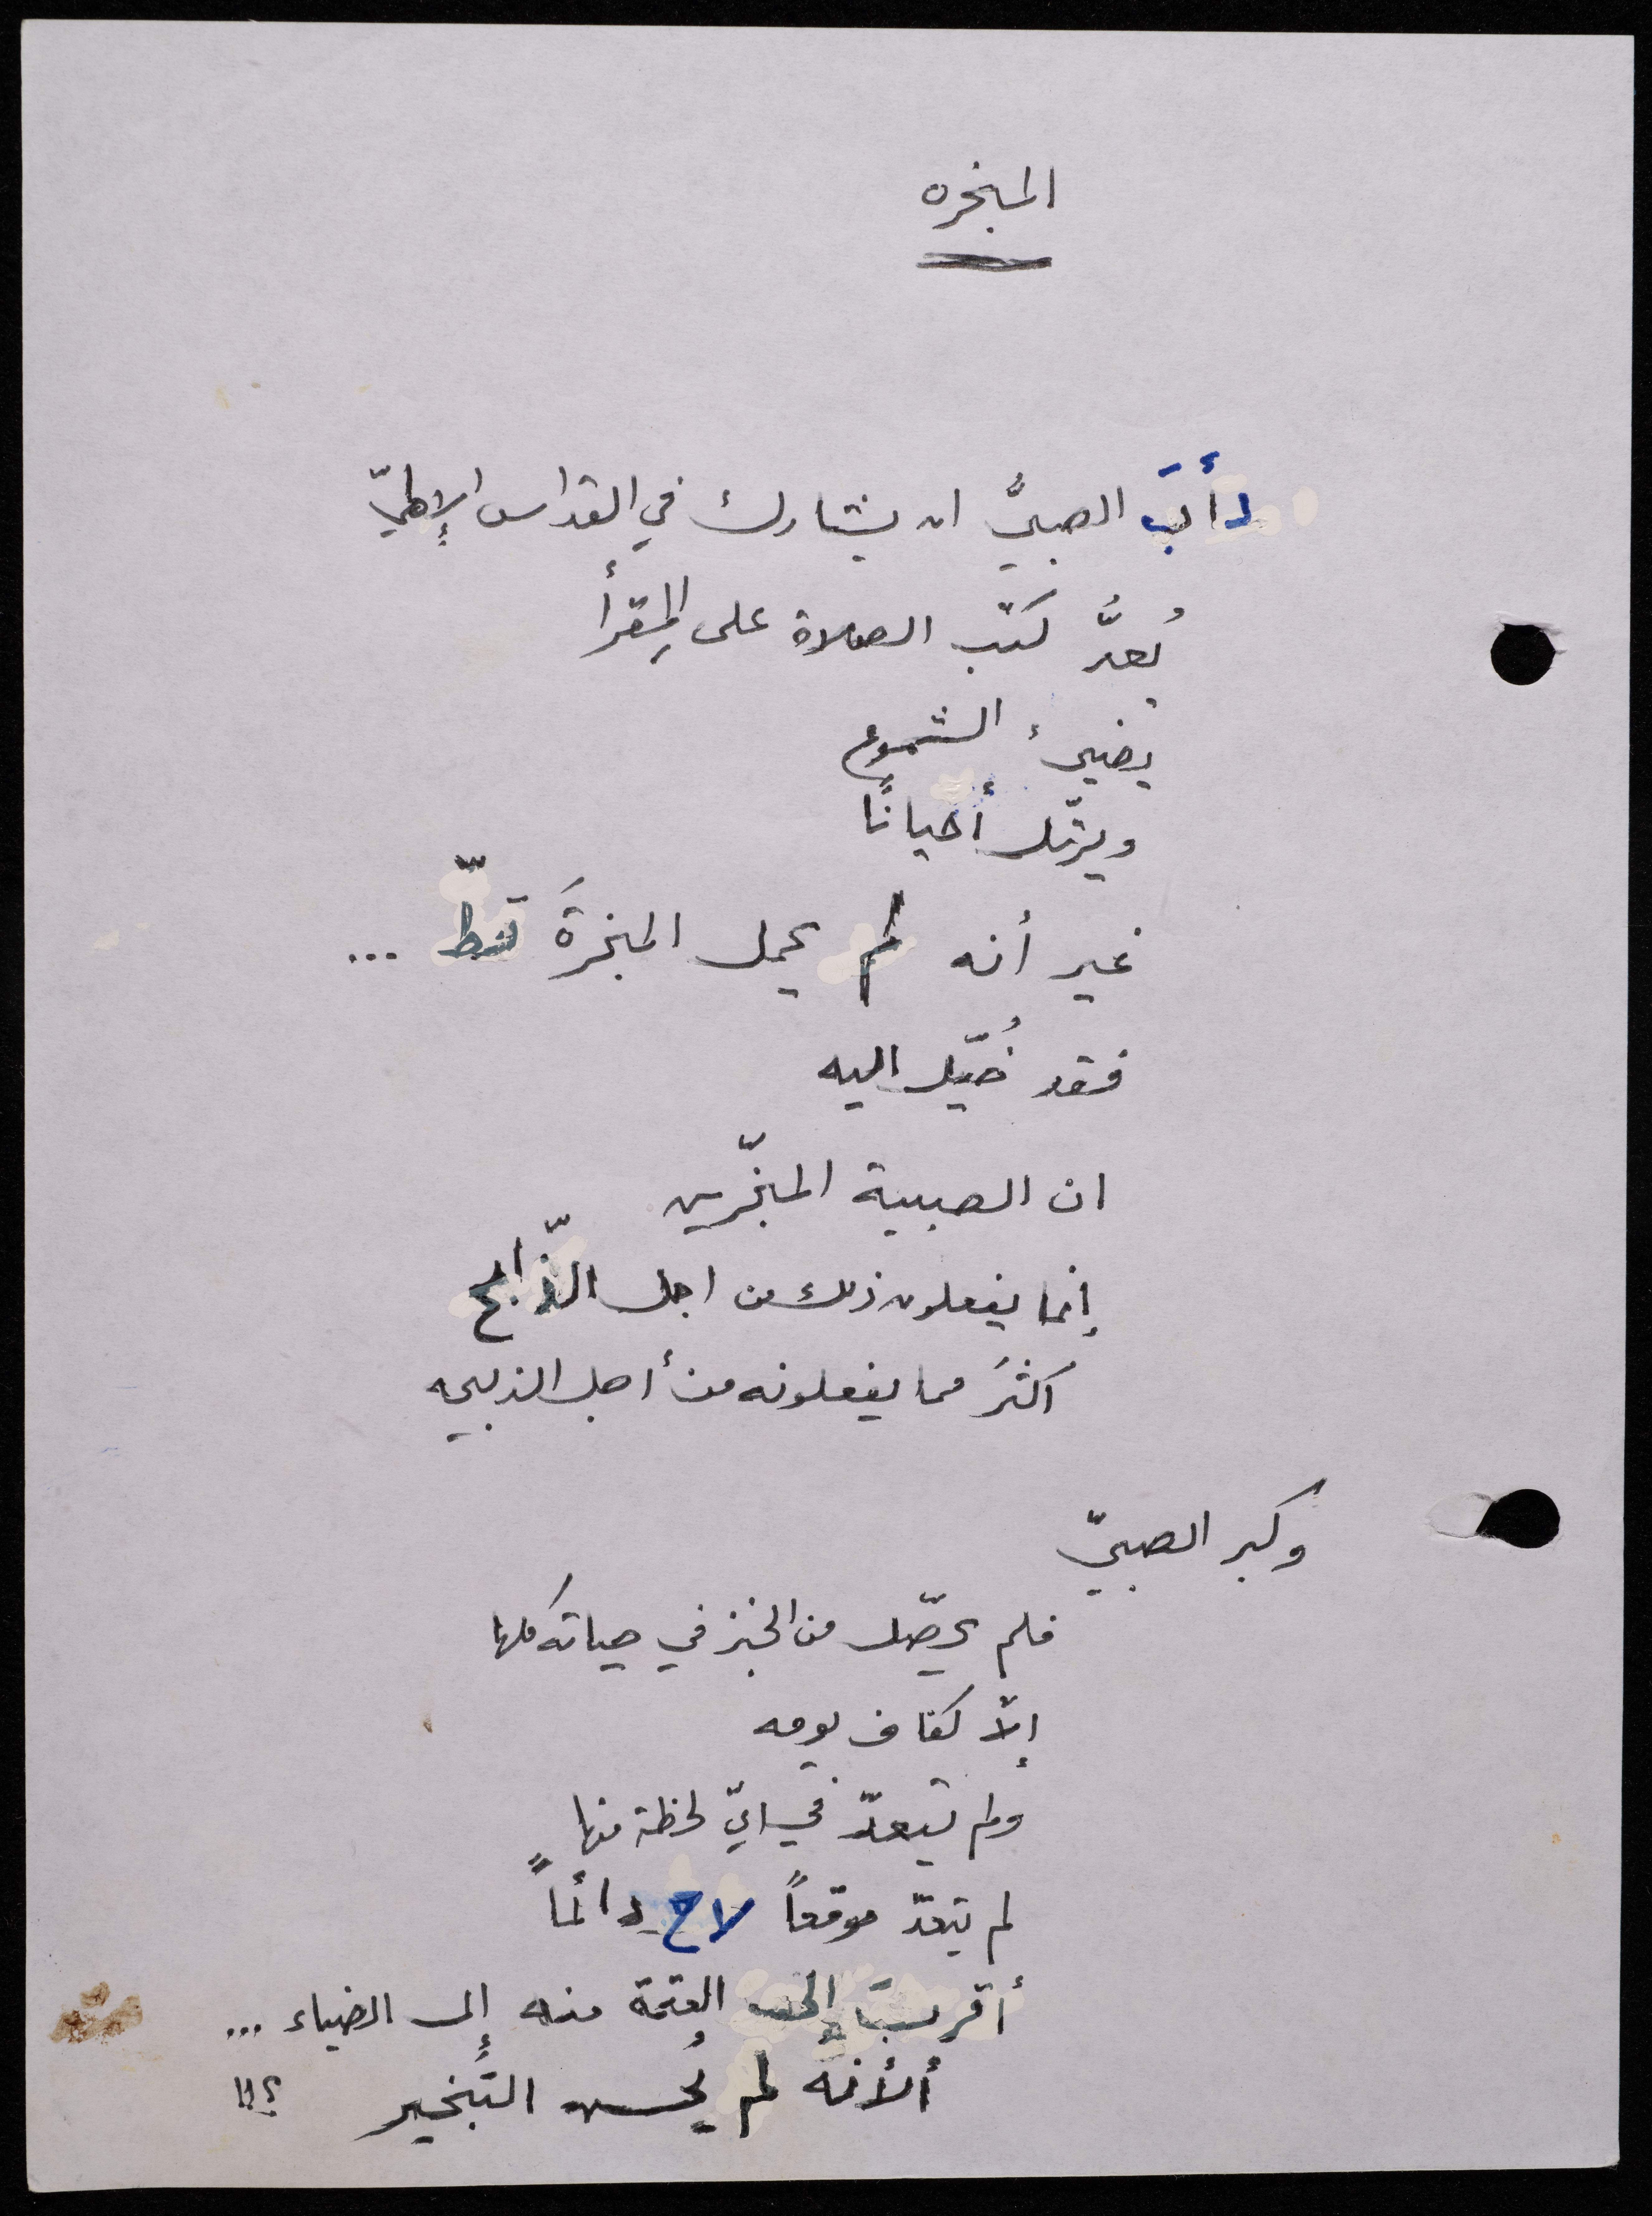 المبخره
دأبَ الصبيُّ ان يشارك في القداس الإلهيّ
يُعدَّ كتب الصلاة على المِقرأ
يضيىء الشموع
ويرتّل أحيانًا
غير أنه لم يحمل المبخرَة قطّ ...
فقد خُيّل اليه
ان الصبية المبخّرين
إنما يفعلون ذلك من اجل الذّابح
اكثرَ مما يفعلونه من أجل الذبيحه
وكبر الصبيّ
فلم يحصّل من الخبز في حياته كلها
إلّا كفاف يومه
ولم يتعدّ في ايّ لحظة منها
لم يتعدّ موقعاً لاح دائماً
أقربَ إلى العتمة منه إلى الضياء ...
ألأنه لم يُحسن التبخير ؟!!